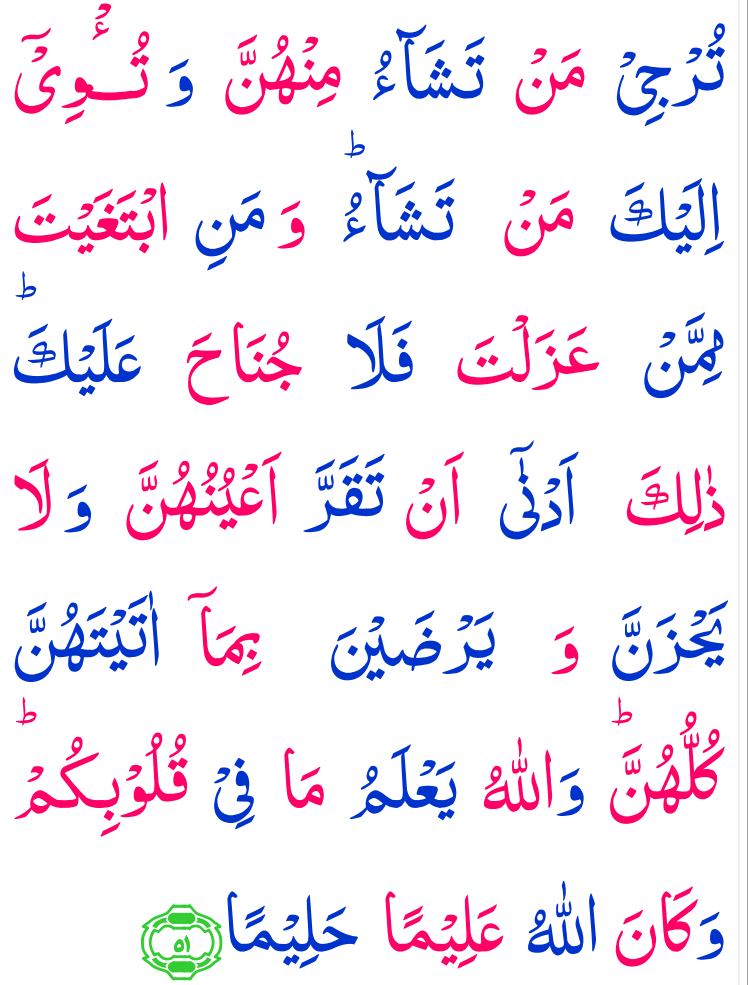 تُرْجِیْ مَنْ تَشَآءُ مِنْهُنَّ وَ تُـْٔوِیْۤ
اِلَیْكَ مَنْ تَشَآءُ ؕ وَ مَنِ ابْتَغَیْتَ
مِمَّنْ عَزَلْتَ فَلَا جُنَاحَ عَلَیْكَ ؕ
ذٰلِكَ اَدْنٰۤی اَنْ تَقَرَّ اَعْیُنُهُنَّ وَ لَا
یَحْزَنَّ وَ یَرْضَیْنَ بِمَاۤ اٰتَیْتَهُنَّ
كُلُّهُنَّ ؕ وَاللّٰهُ یَعْلَمُ مَا فِیْ قُلُوْبِكُمْ ؕ
وَكَانَ اللّٰهُ عَلِیْمًا حَلِیْمًا ۵۱